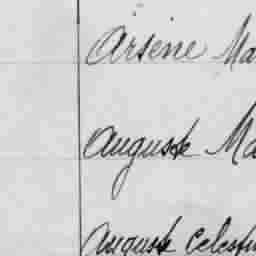 Arsène Ma
Auguste Ma
Auguste Celesti